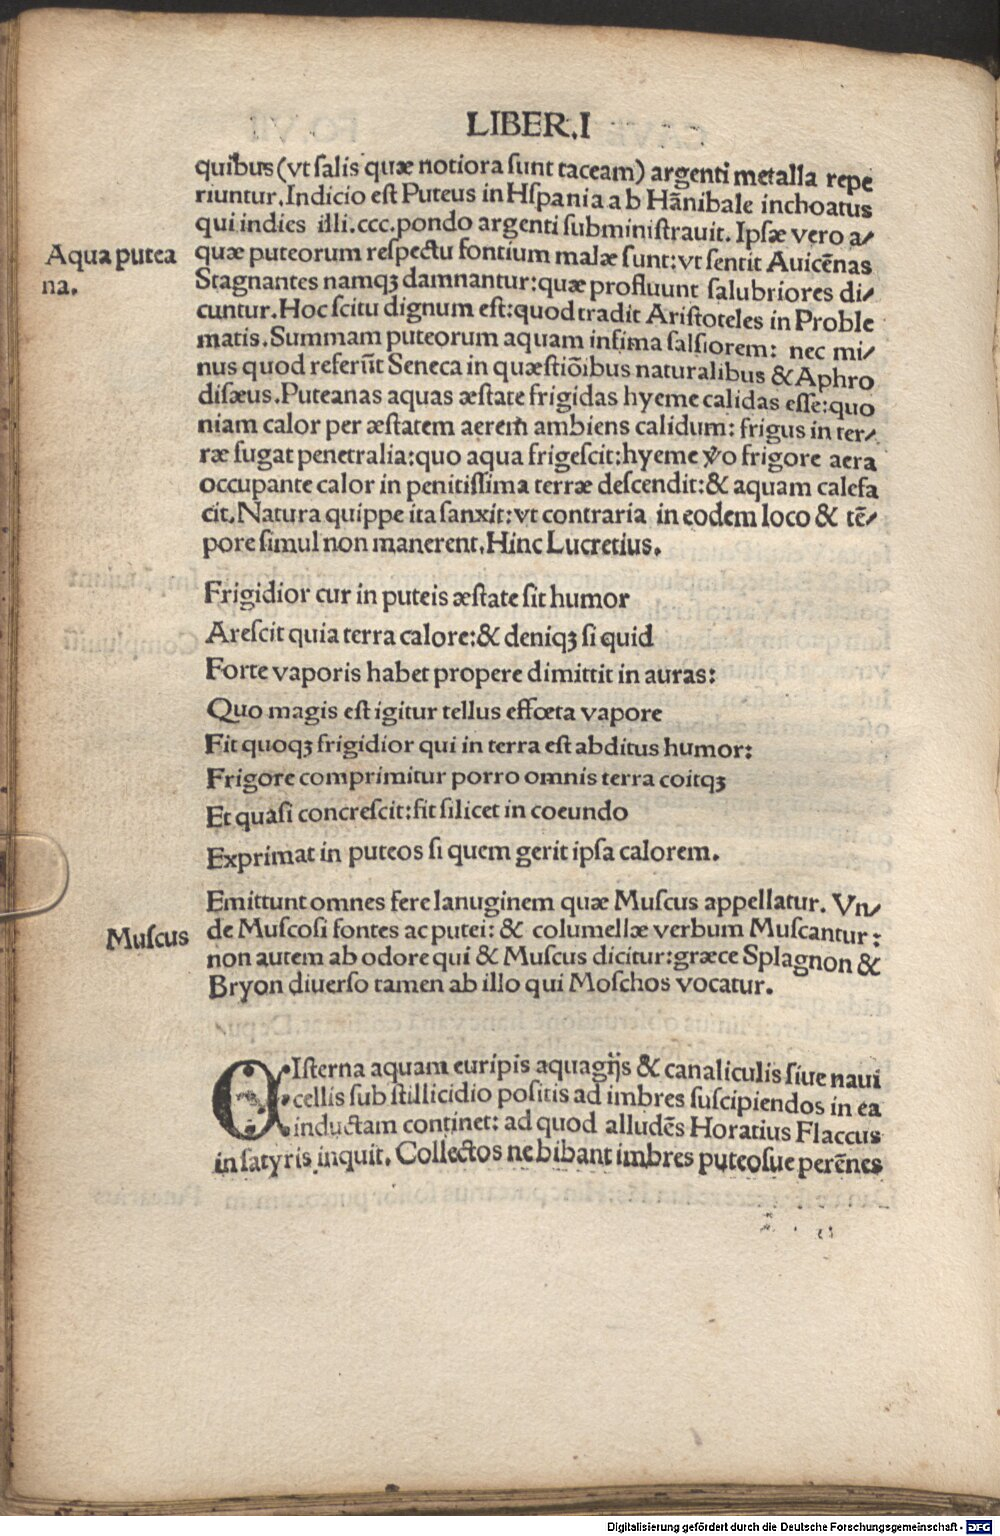 LIBER.I
quibus (vt salis quæ notiora sunt taceam) argenti metalla repe
riuntur. Indicio est Puteus in Hspania ab Hãnibale inchoatus
qui indies illi.ccc.pondo argenti subministrauit. Ipsæ vero a⸗
Aqua putea
na.
quæ puteorum respectu fontium malæ sunt: vt sentit Auicẽnas
Stagnantes namqꝫ damnantur: quæ profluunt salubriores di⸗
cuntur. Hoc scitu dignum est: quod tradit Aristoteles in Proble
matis. Summam puteorum aquam infima salsiorem: nec mi⸗
nus quod referũt Seneca in quæstiõibus naturalibus & Aphro
disæus. Puteanas aquas æstate frigidas hyeme calidas esse: quo
niam calor per æstatem aerem̃ ambiens calidum: frigus in ter⸗
ræ fugat penetralia: quo aqua frigescit: hyeme ṽo frigore aera
occupante calor in penitissima terræ descendit: & aquam calefa
cit. Natura quippe ita sanxit: vt contraria in eodem loco & tẽ⸗
pore simul non manerent. Hinc Lucretius.
Frigidior cur in puteis æstate sit humor
Arescit quia terra calore: & deniqꝫ si quid
Forte vaporis habet propere dimittit in auras:
Quo magis est igitur tellus effœta vapore
Fit quoqꝫ frigidior qui in terra est abditus humor:
Frigore comprimitur porro omnis terra coitqꝫ
Et quasi concrescit: fit silicet in coeundo
Exprimat in puteos si quem gerit ipsa calorem.
Emittunt omnes fere lanuginem quæ Muscus appellatur. Vn⸗
Muscus
de Muscosi fontes ac putei: & columellæ verbum Muscantur:
non autem ab odore qui & Muscus dicitur: græce Splagnon &
Bryon diuerso tamen ab illo qui Moschos vocatur.
CIsterna aquam euripis aquagijs & canaliculis siue naui
cellis sub stillicidio positis ad imbres suscipiendos in ea
inductam continet: ad quod alludẽs Horatius Flaccus
in satyris inquit. Collectos ne bibant imbres puteosue perẽnes
Digitalisierung gefördert durch die Deutsche Forschungsgemeinschaft - DFG